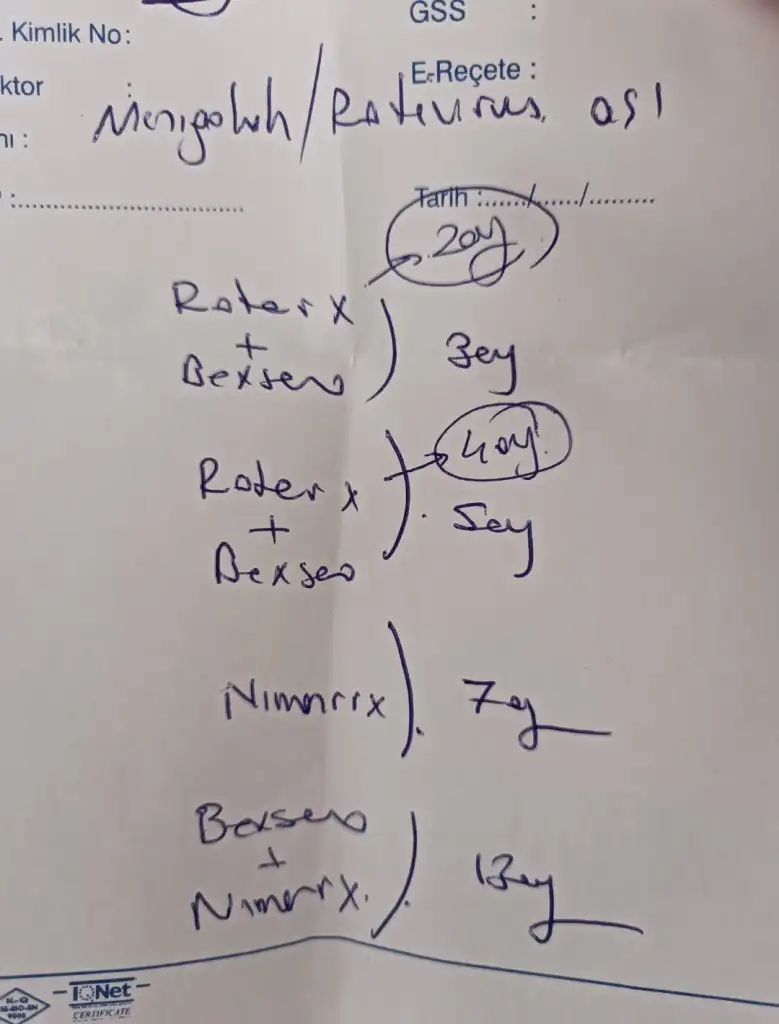 GSS :
. Kimlik No:
ktor :
E-Reçete :
Menigokok / Rotavirus aşı
nı :
: ..............................
Tarih :....../....../.........
2 ay
Roterx
+
Bexsero
3 ay
4 ay
Roterx
+
Bexsero
5 ay
Nimenrix
7 ay
Bexsero
+
Nimenrix.
13 ay
K-Q
9000
IQNet
CERTIFICATE